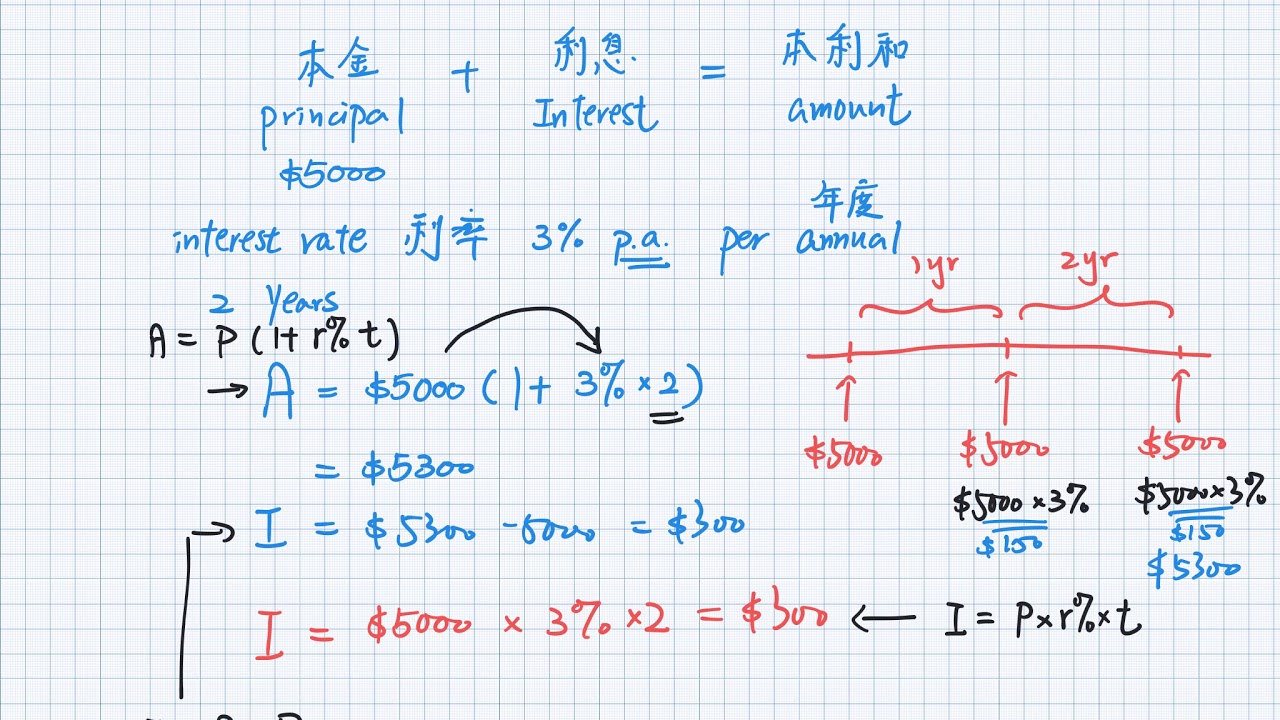 本金 + 利息 = 本利和
principal Interest amount
$5000
年度
interest rate 利率 3% p.a. per annual
2 years
A = P (1+ r% t)
→ A = $5000 (1+ 3% × 2)
= $5300
→ I = $5300 -5000 = $300
I = $5000 × 3% ×2 = $300 ← I = P×r%×t
1yr 2yr
$5000 $5000 $5000
$5000 ×3% $5000×3%
$150 $150
$5300